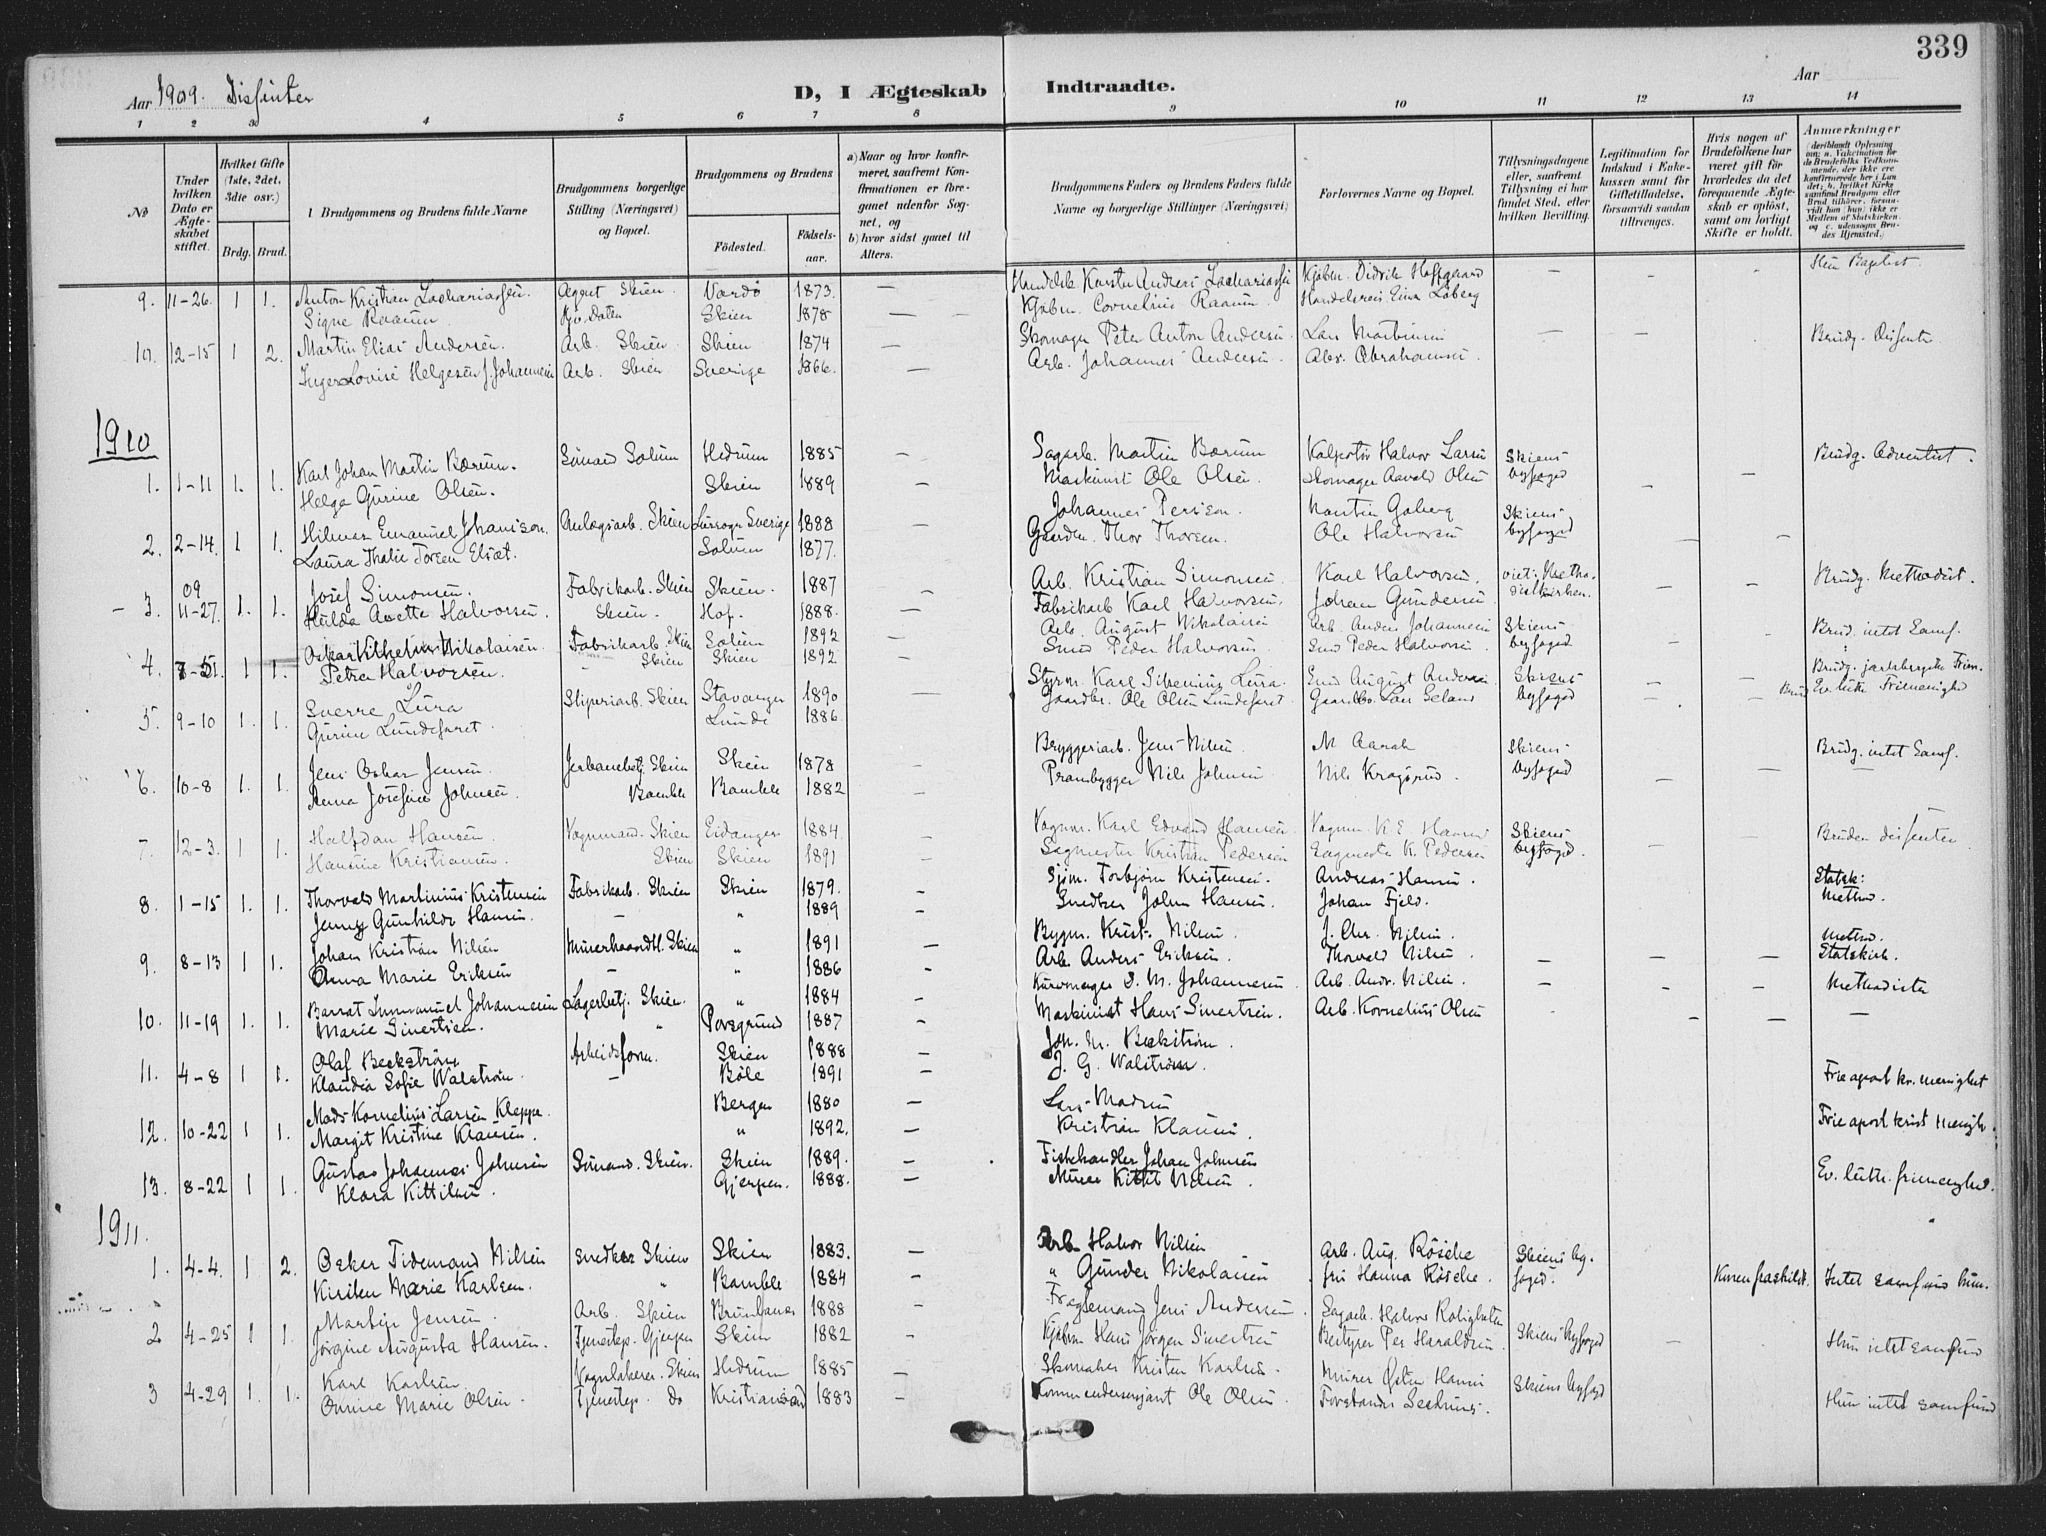 339
Aar 1909. Disfinter D, I Ægteskab Indtraadte. Aar
1 2 3 4 5 6 7 8 9 10 11 12 13 14
No
Under hvilken Dato er Ægteskabet stiftet.
Hvilket Gifte (1ste, 2det, 3die osv.)
Brdg. Brud.
Brudgommens og Brudens fulde Navne
Brudgommens borgerlige Stilling (Næringsvei) og Bopæl.
Brudgommens og Brudens
Fødested.
Fødselsaar.
a) Naar og hvor konfirmeret, saafremt Konfirmationen er foregaaet udenfor Sognet, og
b) hvor sidst gaaet til Alters.
Brudgommens Faders og Brudens Faders fulde Navne og borgerlige Stillinger (Næringsvei)
Forlovernes Navne og Bopæl.
Tillysningsdagene eller, saafremt Tillysning ei har fundet Sted, efter hvilken Bevilling.
Legitimation for Indskud i Enkekassen samt for Giftetilladelse, forsaavidt saadan tiltrænges.
Hvis nogen af Brudefolkene har været gift før hvorledes da det foregaaende Ægteskab er opløst, samt om lovligt Skifte er holdt.
Anmærkninger
9. 11-26. 1 1. Anton Kristian Zachariassen. Agent Skien Vardø 1873. Karsten Andreas Zachariassen Kjøbm. Didrik Hoffgaard Hun Baptist
Signe Raaum Skien 1878 Kjøbm. Cornelius Raaum Einar Løberg
10. 12-15 1 2. Martin Elias Andersen. Arb. Skien Skien 1874 Skomager Peter Anton Andersen Lars Brudg. Dissenter
Inger Lovise Helgesen f. Johannesen Arb. Skien Sverige 1866. Arb. Johannes Andersen Abr. Abrahamsen
1910
1. 1-11 1. 1. Karl Johan Martin Bærum. Sømand Solum Hedrum 1885 Sagarb. Martin Bærum Halvor Larsen Skiens byfoged Brudg. Adventist.
Helga Gurine Olsen. Skien 1889 Maskinist Ole Olsen. Skomager Aavald Olsen
2. 2-14. 1 1. Hilmar Emanuel Anlægsarb. Skien Sverige 1888 Johannes Persson. Martin Skiens byfoged
Laura Thalie Torsen Solum 1877. Gaardm. Thor Thorsen. Ole Halvorsen
3. 09 11-27. 1. 1. Josef Simonsen. Fabrikarb. Skien Skien. 1887 Arb. Kristian Simonsen Karl Halvorsen. Brudg. Methodist.
Hulda Anette Halvorsen. Skien. Hof. 1888. Fabrikarb Karl Halvorsen. Johan Gundersen
4. 1 1. Oskar Vilhelm Nikolaisen. Fabrikarb. Skien Solum 1892 Arb. August Nikolaisen Arb. Anders Johannesen Skiens byfoged Brud. intet Samf.
Petra Halvorsen. Skien Skien 1892 Smed Peder Halvorsen Smed Peder Halvorsen
5. 9-10 1. 1. Sverre Lura Sliperiarb. Skien Stavanger 1890 Styrm. Karl Lura. August Andersen Skiens byfoged
Gurine Lundefaret. Lunde 1886. Gaardbr. Ole Olsen Lundefaret Lars Seland
6. 10-8 1. 1. Jens Oskar Jensen. Jerbanebetj. Skien Skien 1878 Bryggeriarb. Jens Nilsen. M Aarak Skiens byfoged Brudg. intet Samf.
Anna Josefine Johnsen. Bamble Bamble 1882 Prambygger Nils Johnsen Nils Kragsrud.
7. 12-3. 1 1. Halfdan Hansen. Vognmand. Skien Eidanger 1884. Vognm. Karl Edvard Hansen. Vognm. K. E. Hansen Skiens byfoged. Bruden dissenter
Hansine Kristiansen. Skien Skien 1891 Sagmester Kristian Pedersen Sagmester K. Pedersen
8. 1-15 1. 1. Thorvald Martinius Kristensen Fabrikarb. Skien Skien 1879. Sjøm. Torbjørn Kristensen. Andreas Hansen. Statsk:
Jenny Gunhilde Hansen. — " 1889 Snedker Johan Hansen. Johan Fjeld. Method.
9. 8-13 1 1. Johan Kristian Nilsen Murerhaandtl. Skien " 1891 Bygm. Krist. Nilsen. J. Chr. Nilsen. Method.
Anna Marie Eriksen — " 1886 Arb. Anders Eriksen. Thorvald Nilsen. Statskirk.
10. 11-19 1. 1. Immanuel Johannesen Lagerbetj. Skien. " 1884 Kurvmager D. M. Johannesen Arb. Andr. Nilsen. Methodister
Marie Sivertsen. " Porsgrund 1887 Maskinist Hans Sivertsen. Arb. Kornelius Olsen —
11. 4-8 1 1. Olaf Beckstrøm Arbeidsform. Skien 1888 Joh. M. Beckstrøm.
Klaudia Sofie Walstrøm. — Bøle 1891 J. G. Walstrøm. Frie apost kr. menighet
12. 10-22 1 1. Mads Kornelius Larsen Kleppe. Bergen 1880 Lars Madsen
Margit Kristine Klausen. " 1892. Kristian Klausen. Frie apost krist menigh.
13. 8-22 1 1. Gustav Johannes Johnsen Sømand. Skien. Skien 1889. Fiskehandler Johan Johnsen
Klara Kittilsen. Gjerpen. 1888. Murer Kittil Nilsen. Ev. luth. frimenighed.
1911.
1. 4-4. 1 2. Oskar Tidemand Nilsen Snedker Skien Skien 1883. Arb. Halvor Nilsen Arb. Aug. Røsche Skiens byfoged.
Kirsten Marie Karlsen. " Bamble 1884 " Gunder Nikolaisen frú Hanna Røsche. Konen fraskilt. Intet samfund hun.
2 4-25 1 1. Martin Jensen. Arb. Skien Brunlanes 1888 Jens Andersen. Sagarb. Halvor Roligheten Skiens byfoged
Jørgine Augusta Hansen. Tjenestep. Gjerpen Skien 1882 Kjøbm Hans Jørgen Sivertsen Bestyrer Per Haraldsen. Hun intet samfund
3 4-29 1. 1. Karl Karlsen Vognlakerer. Skien Hedrum 1885 Skomaker Kristen Karlsen. Murer Østen Hansen Skiens byfoged
Marie Olsen. Tjenestep. do Kristiansand 1883 Kommandersersjant Ole Olsen. Forstander Hun intet samfund